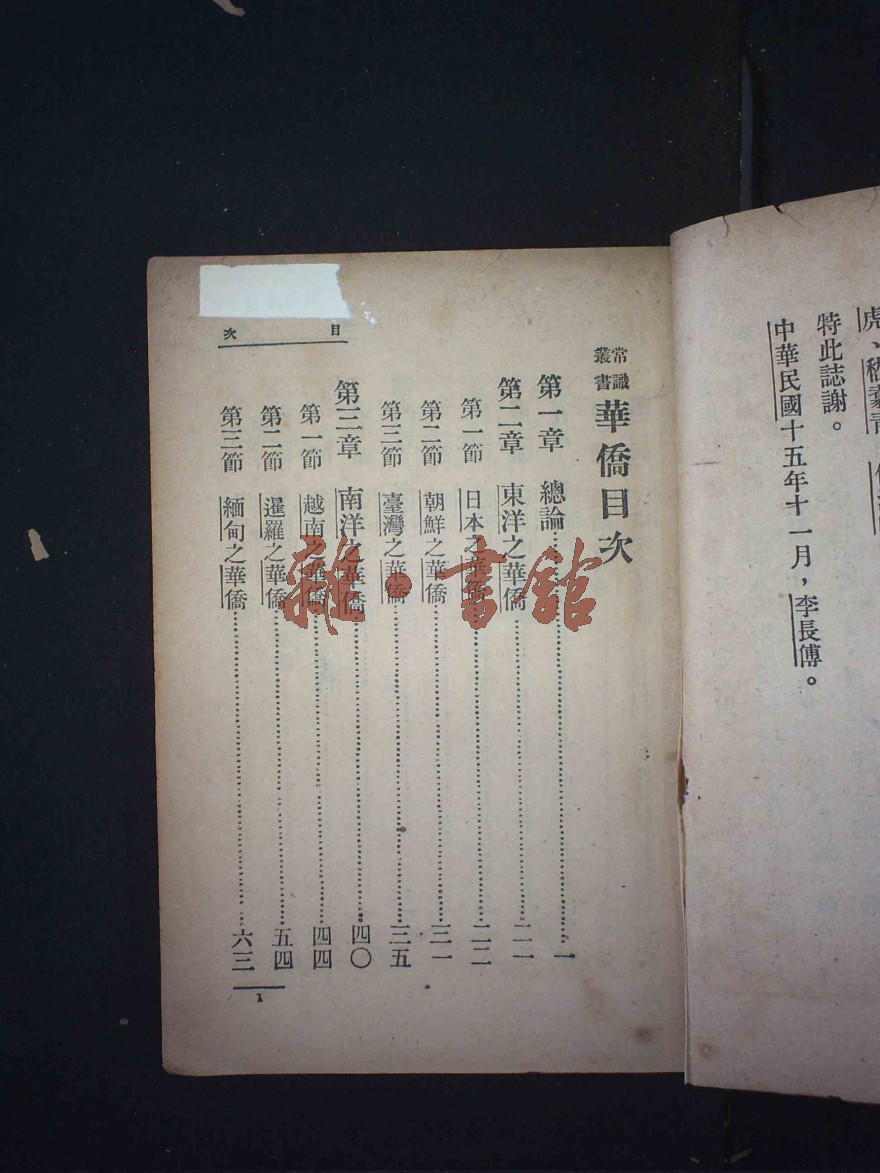 虎、
特此誌謝。
中華民國十五年十一月，李長傅。
常識叢書 華僑目次
第一章 總論……一
第二章 東洋之華僑……二一
第一節 日本之華僑……二二
第二節 朝鮮之華僑……三一
第三節 臺灣之華僑……三五
第三章 南洋之華僑……四〇
第一節 越南之華僑……四四
第二節 暹羅之華僑……五四
第三節 緬甸之華僑……六三
目次
1
雜·書館